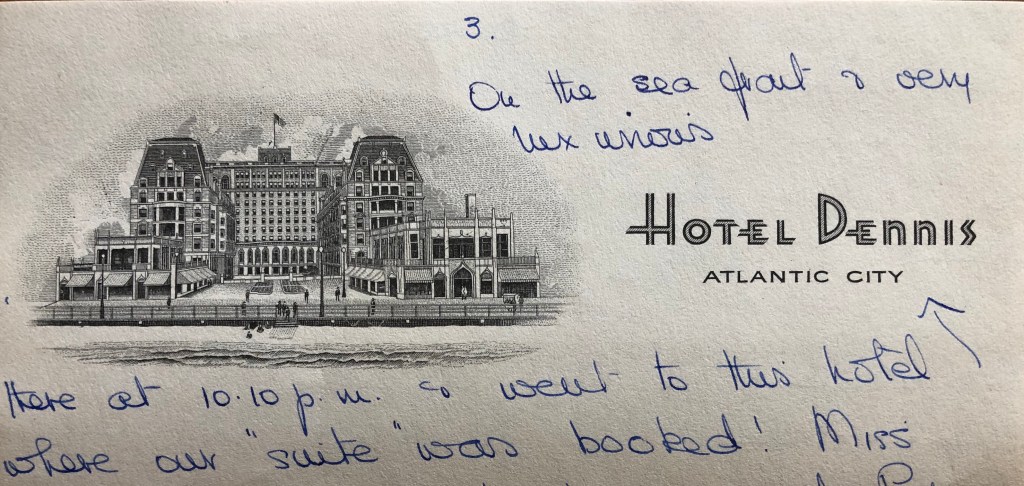 3.
On the sea front & very
luxurious
HOTEL DENNIS
ATLANTIC CITY
there at 10.10 p.m. & went to this hotel
where our "suite" was booked! Miss